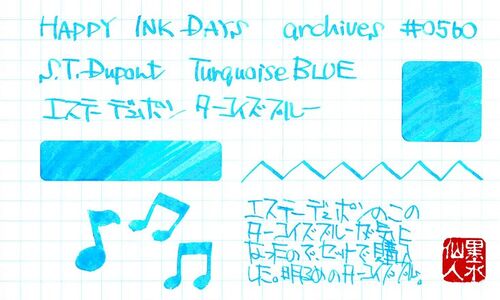 HAPPY INK DAYS archives #0560
S.T.Dupont Turquoise BLUE
エステーデュポン ターコイズブルー
エステーデュポンのこの
ターコイズブルーが気に
なったので、セットで購入
した。明るめのターコイズブルー。
墨水
仙人